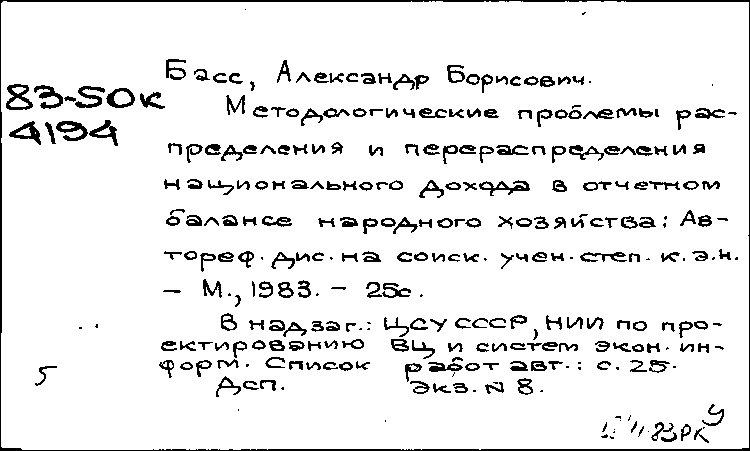 Басс, Александр Борисович.
83-5ОК
4194
Методологические проблемы рас-
пределения и перераспределения
национального дохода в отчетном
балансе народного хозяйства: Ав-
тореф. дис. на соиск. учен. степ. к.э.н.
– М., 1983. – 25с.
В надзаг.: ЦСУ СССР, НИИ по про-
ектированию ВЦ и систем экон. ин-
форм. Список работ авт.: с. 25.
Дсп. Экз. N 8.
5
83РК